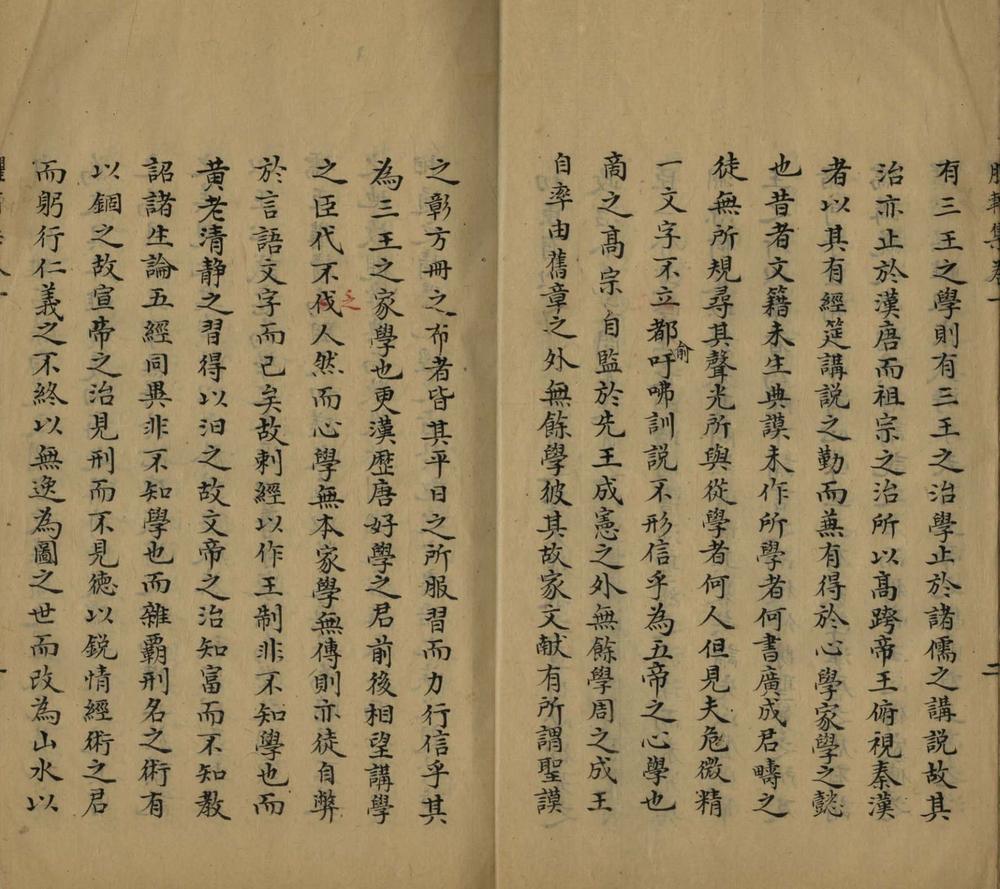 有三王之學則有三王之治學止於諸儒之講說故其
治亦止於漢唐而祖宗之治所以髙跨帝王俯視秦漢
者以其有經筵講說之勤而蕪有得於心學家學之懿
也昔者文籍未生典謨未作所學者何書廣成君疇之
徒無所規尋其聲光所與從學者何人但見夫危微精
一文字不立都俞吁咈訓説不形信乎為五帝之心學也
商之髙宗自監於先王成憲之外無餘學周之成王
自率由舊章之外無餘學彼其故家文献有所謂聖謨
之彰方冊之布者皆其平日之所服習而力行信乎其
為三王之家學也更漢歷唐好學之君前後相望講學
之臣代不乏人然而心學無本家學無傳則亦徒自弊
於言語文字而已矣故刺經以作王制非不知學也而
黄老清静之習得以汩之故文帝之治知富而不知教
詔諸生論五經同異非不知學也而雜覇刑名之術有
以錮之故宣帝之治見刑而不見徳以鋭情經術之君
而躬行仁義之不終以無逸為圖之世而改為山水以